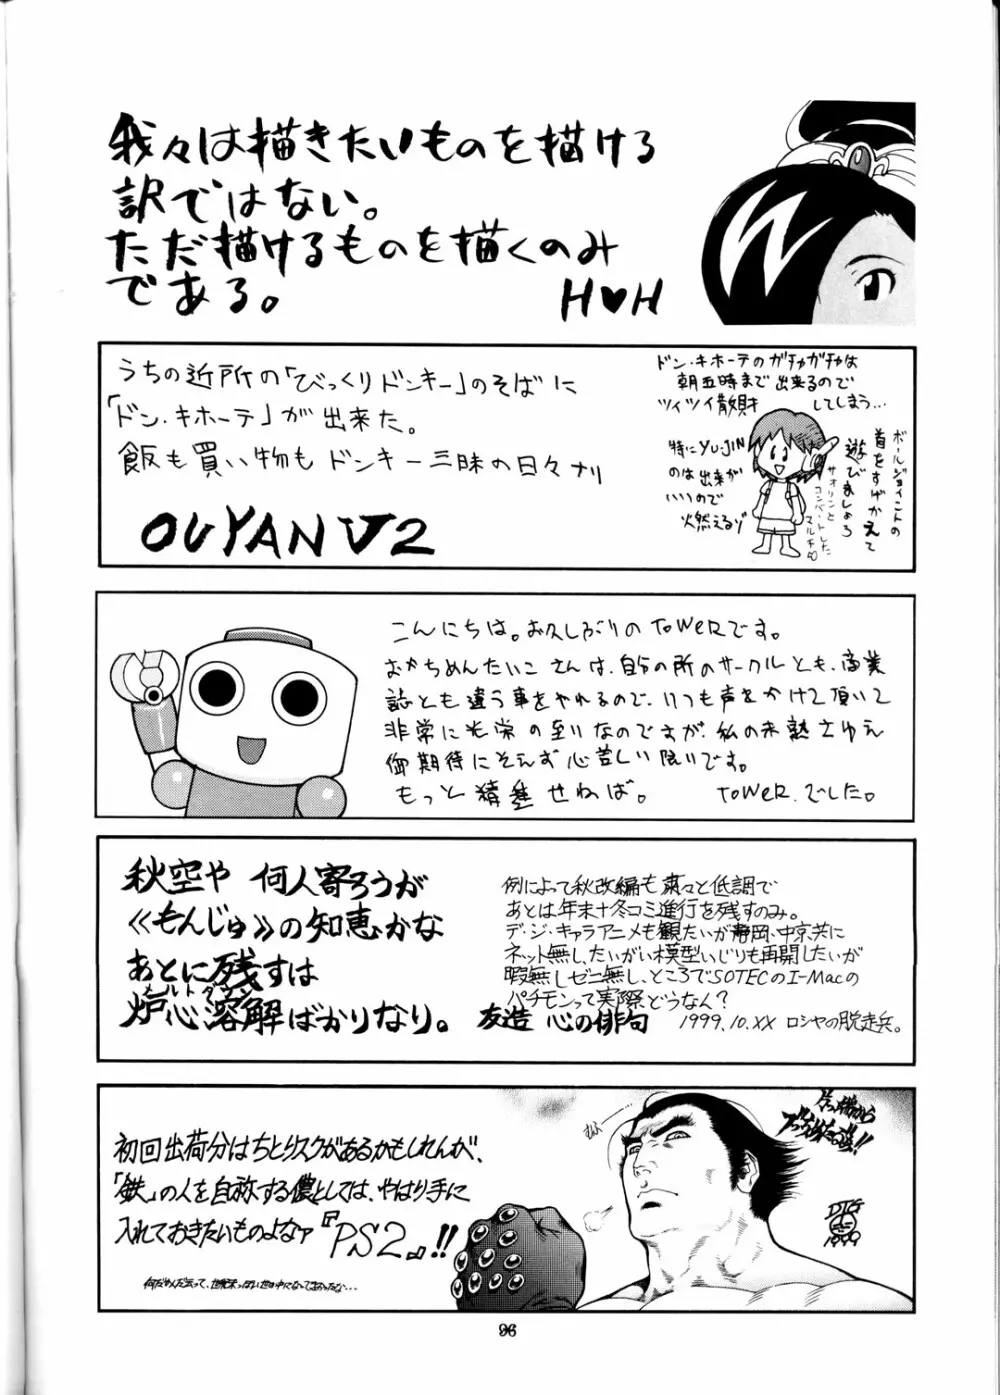 我々は描きたいものを描ける
訳ではない。
ただ描けるものを描くのみ
である。
H♥H
うちの近所の「びっくりドンキー」のそばに
「ドン・キホーテ」が出来た。
飯も買い物もドンキー三昧の日々ナリ
OUYANU2
ドン・キホーテのガチャガチャは
朝五時まで出来るので
ツイツイ散財してしまう…
特にYUJIN
のは出来が
いいので
火燃えるゾ
ボールジョイントの
首をすげかえて
遊びましょう
サオリンと
コンバートした
マルチ
こんにちは。お久しぶりのToWeRです。
おかちめんたいこさんは、自分の所のサークルとも、商業
誌とも違う事をやれるので、いつも声をかけて頂いて
非常に光栄の至りなのですが、私の未熟さゆえ
御期待にそえず心苦しい限りです。
もっと精進せねば。
ToWeR.でした。
秋空や 何人寄ろうが
《もんじゅ》の知恵かな
あとに残すは
メルトダウン
炉心溶解ばかりなり。
友造 心の俳句
例によって秋改編も粛々と低調で
あとは年末+冬コミ進行を残すのみ。
デ・ジ・キャラアニメも観たいが静岡、中京共に
ネット無し、たいがい模型いじりも再開したいが
暇無しゼニ無し、ところでSOTECのI-Macの
パチモンって実際どうなん?
1999.10.XX ロシヤの脱走兵。
初回出荷分はちとリスクがあるかもしれんが、
「鉄」の人を自称する儂としては、やはり手に
入れておきたいものよなァ『PS2』!!
DTG
1999
96